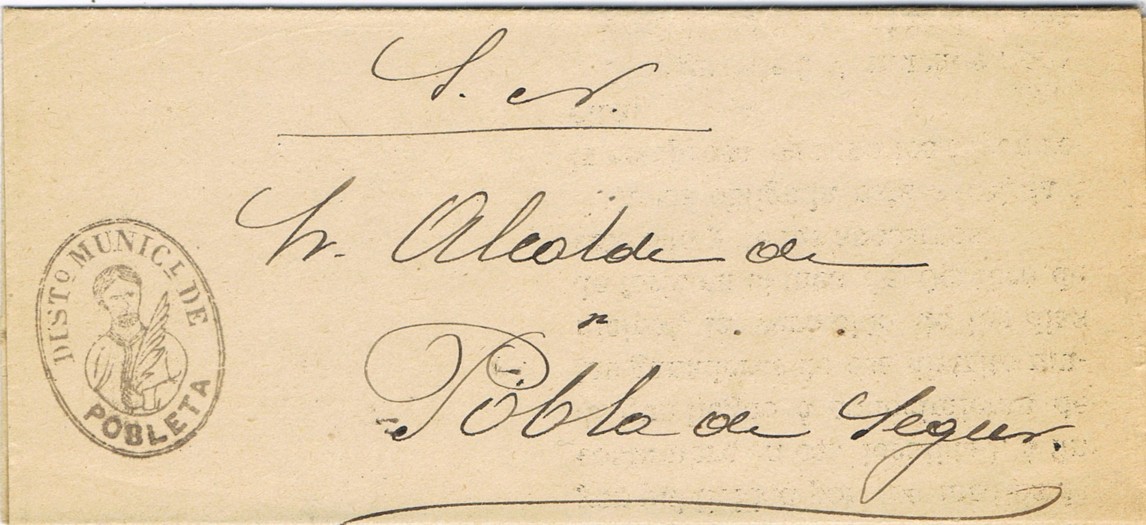 S. N.
Sr. Alcalde de
Pobla de Segur.
DISTO MUNICL DE
POBLETA